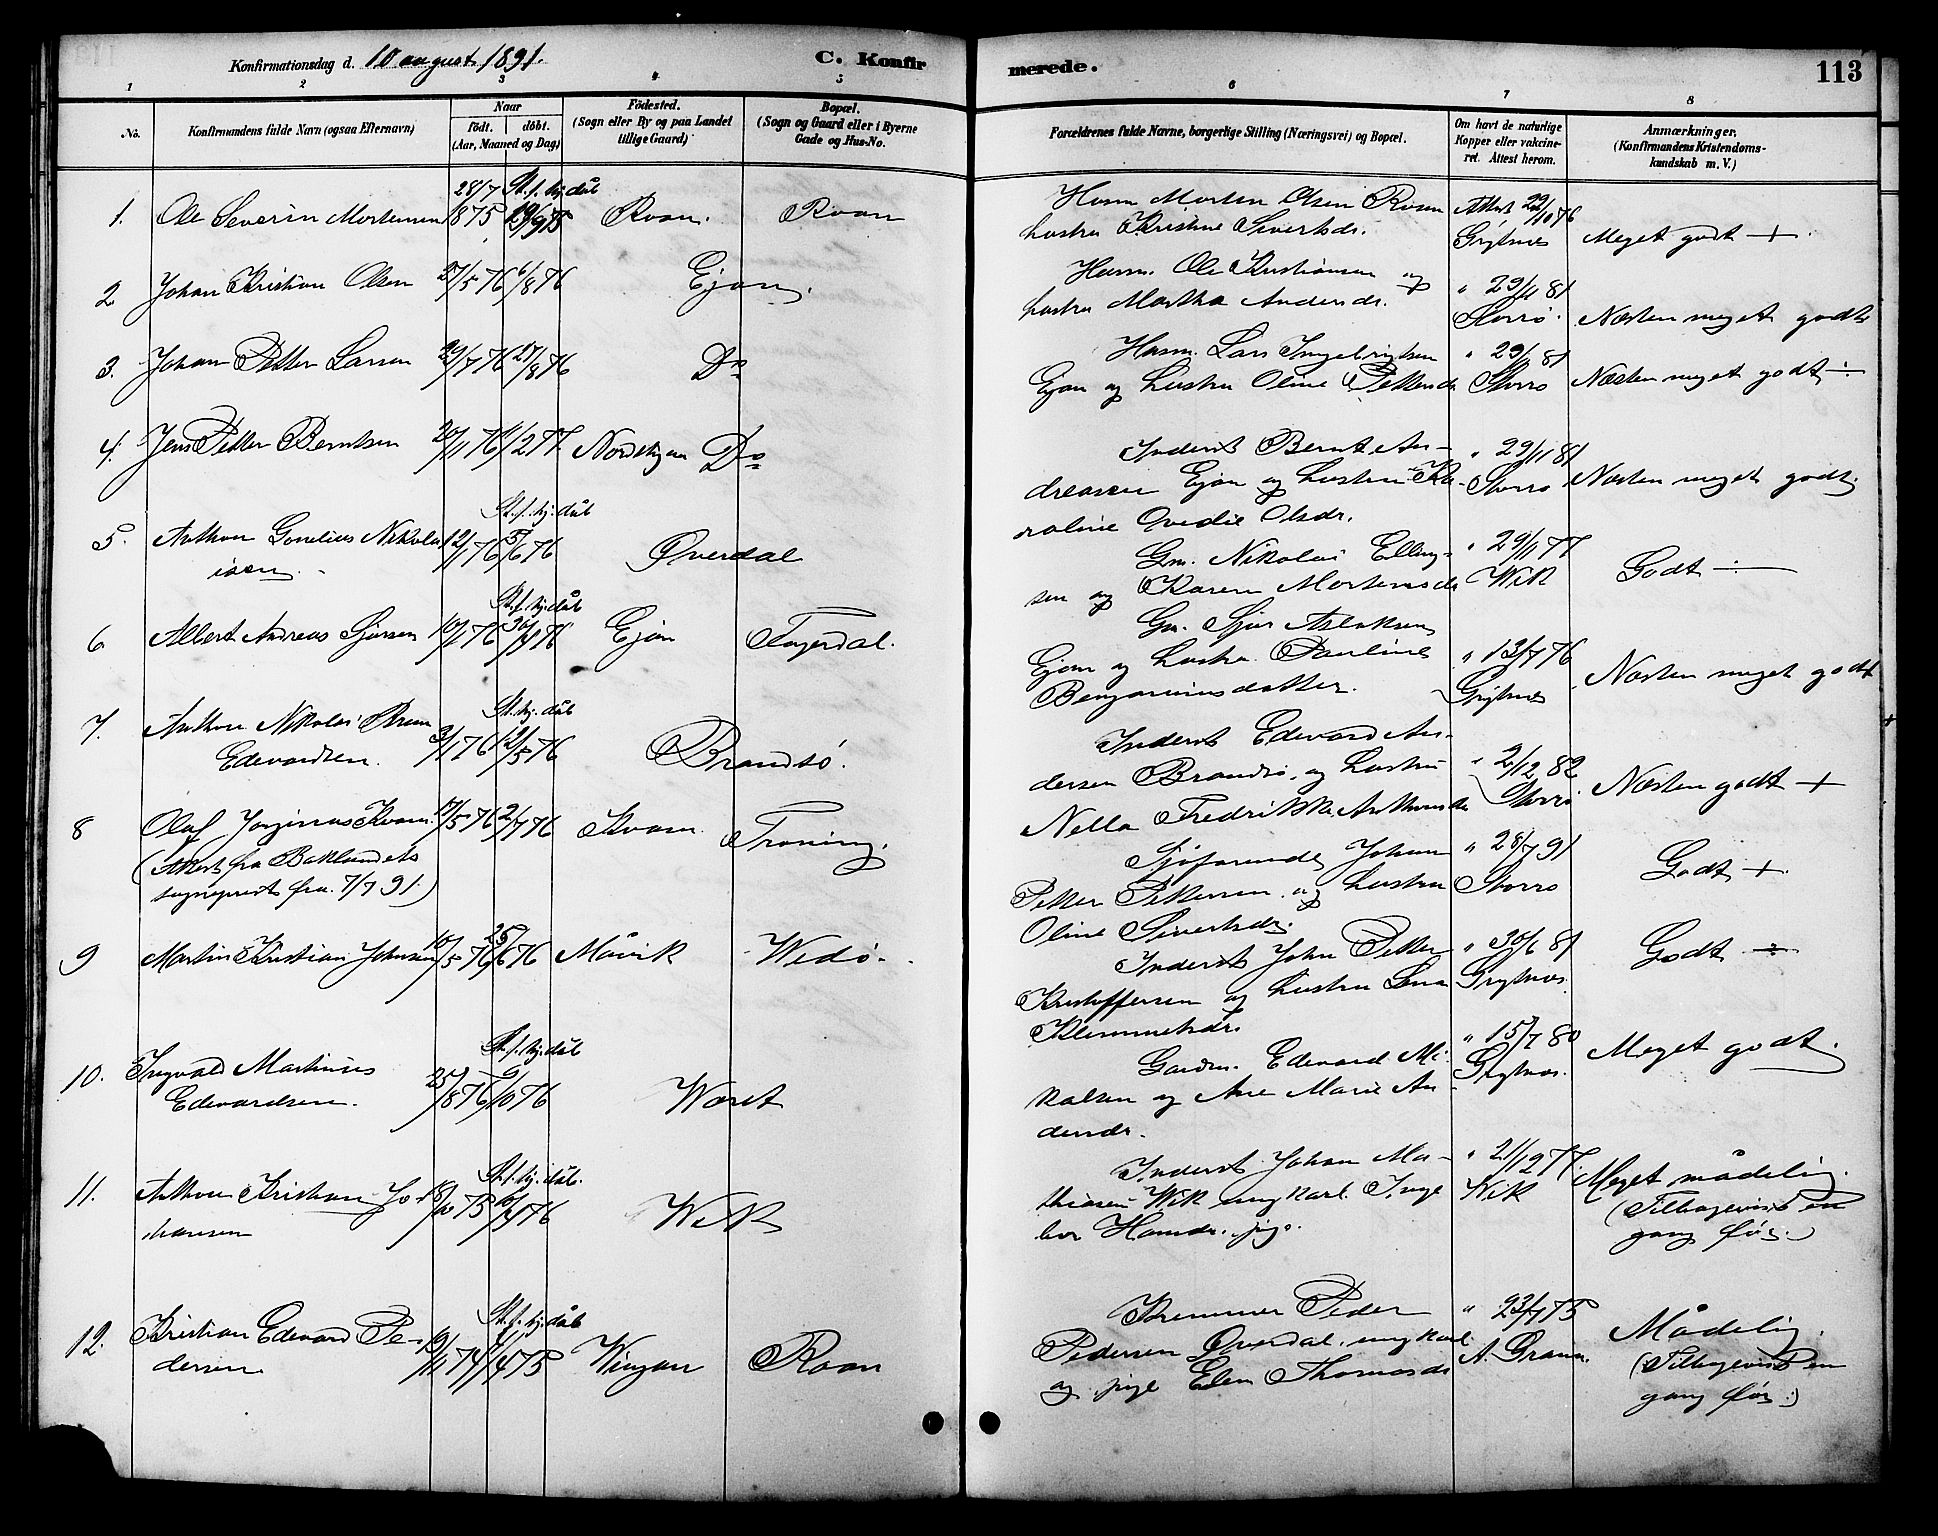 Konfirmationsdag d. 10 august 1891.
C. Konfirmerede.
113
1 2 3 4 5 6 7 8
No.
Konfirmandens fulde Navn (ogsaa Efternavn)
Naar
født. døbt.
(Aar, Maaned og Dag)
Fødested.
(Sogn eller By og paa Landet
tillige Gaard)
Bopæl.
(Sogn og Gaard eller i Byerne
Gade og Hus-No.
Forældrenes fulde Navne, borgerlige Stilling (Næringsvei) og Bopæl.
Om havt de naturlige
Kopper eller vakcine-
ret. Attest herom.
Anmærkninger.
(Konfirmandens Kristendoms-
kundskab m. V.)
28/7 St. f. hj. dåb
1. Ole Severin Mortensen 1875 19/9 75 Roan. Roan
Husm. Morten Olsen Roan
hustru Kristine Sivertsdr.
Attest 22/10 76
Grytnes
Meget godt +
2 Johan Kristian Olsen 27/5 76 6/8 76 Ejan.
Husm. Ole Kristiansen og
hustru Martha Andersdr.
" 29/11 81
Storrø.
Næsten meget godt
3. Johan Petter Larsen 29/7 76 27/8 76 Do
Husm. Lars Ingebrigtsen
Ejan og hustru Oline Pettersdr
" 29/11 81
Storrø
Næsten meget godt
4. Jens Petter Berntsen 20/11 76 1/2 77. Nordskjan Do
Inderst Bernt An-
dreasen Ejan og hustru Ka-
roline Ovedie Olsdr.
" 29/11 81
Storrø
Næsten meget godt.
St. f. hj. dåb
5. Anthon Gonelius Nikola- 12/1 76 5/6 76 Øverdal
isen.
Gm. Nikolai Elling-
sen og Karen Mortensdr
" 29/1 77
Wik
Godt
St. f. hj. dåb
6 Albert Andreas Sjursen 10/1 76 30/4 76 Ejan Fagerdal.
Gm. Sjur Aslaksen
Ejan og hustru Pauline
Benjaminsdatter.
" 13/7 76
Grytnes
Næsten meget godt
St. hj. dåb
7. Anthon Nikolai
Edevardsen. 3/1 76 12/5 76 Brandsø.
Inderst Edevard An-
dersen Brandsø, og hustru
Nella Fredrikke Anthonsdr
" 2/12 82
Storrø
Næsten godt +
8 Olaf Jorginus Kvam. 17/5 76 2/7 76 Kvam Troning.
(Attest fra Baklandets
sogneprest fra. 7/7 91.)
Sjøfarende Johan
Petter Pettersen og hustru
Oline Sivertsdr.
" 28/7 91
Storrø
Godt +.
9 Martin Kristian Johnsen 10/5 76 25/6 76 Måvik Wedø.
Inderst John Petter
Kristoffersen og hustru Lena
Klemmetsdr.
" 30/6 81
Grytnes.
Godt
St. f. hj. dåb
10. Ingvald Martinus
Edevardsen. 25/8 76 9/10 76 Wæret
Gardm. Edevard Mi-
kalsen og Ane Marie An-
dersdr.
" 15/7 80
Grytnes.
Meget godt.
St. f. hj. dåb.
11. Anthon Kristian Jo- 18/10 75 16/4 76 Wik
hansen
Inderst Johan Ma-
thiasen Wik ungkarl. Inge-
bor Hansdr. pige.
" 21/12 77.
Wik
Meget mådelig.
(Tilbagevist en
gang før.)
St. f. hj. dåb
12. Kristian Edevard Pe- 19/11 74 1/4 75 Wingan Roan
dersen.
Kræmmer Peder
Pedersen Øverdal, ungkarl.
og pige Elen Thomasdr
" 23/7 75
A. Grann.
Mådelig.
(Tilbagevist en
gang før.)